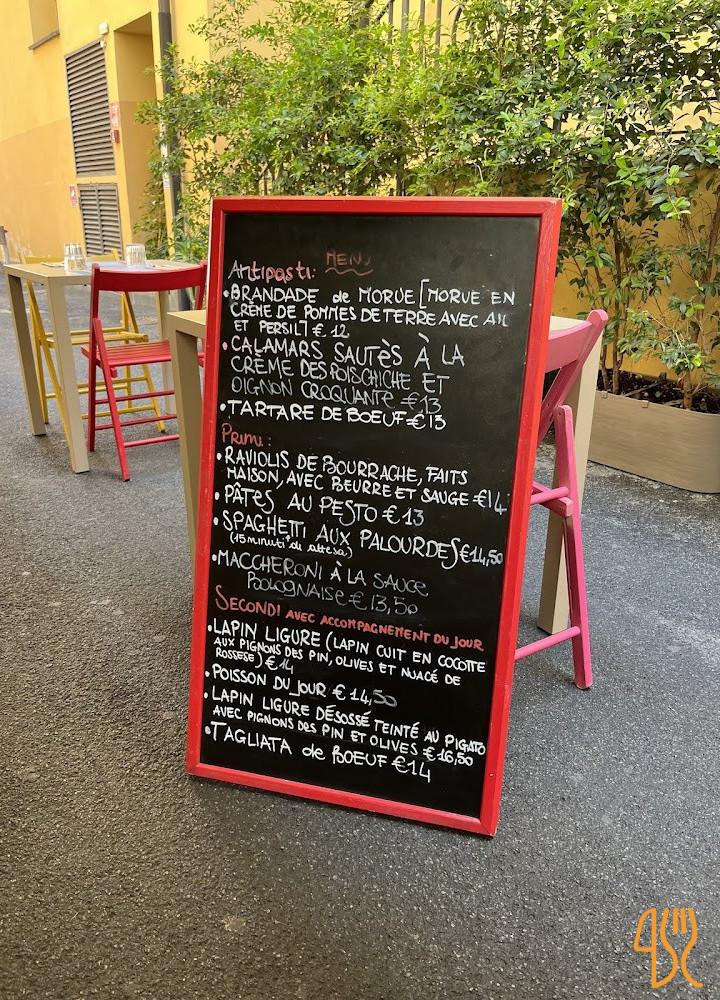 MENU
Antipasti:
•BRANDADE de MORUE [MORUE EN
CRÈME DE POMMES DE TERRE AVEC AIL
ET PERSIL] € 12
•CALAMARS SAUTÈS À LA
CRÈME DES POIS CHICHE ET
OIGNON CROQUANTE €13
•TARTARE DE BOEUF €13
PRIMI:
•RAVIOLIS DE BOURRACHE, FAITS
MAISON, AVEC BEURRE ET SAUGE €14
•PÂTES AU PESTO € 13
•SPAGHETTI AUX PALOURDES €14,50
(15 minuti di attesa)
•MACCHERONI À LA SAUCE
BOLOGNAISE € 13,50
SECONDI AVEC ACCOMPAGNEMENT DU JOUR
•LAPIN LIGURE (LAPIN CUIT EN COCOTTE
AUX PIGNONS DES PIN, OLIVES ET NUACÉ DE
ROSSESE) € 14
•POISSON DU JOUR € 14,50
•LAPIN LIGURE DÉSOSSÉ TEINTÉ AU PIGATO
AVEC PIGNONS DES PIN ET OLIVES € 16,50
•TAGLIATA de BOEUF €14